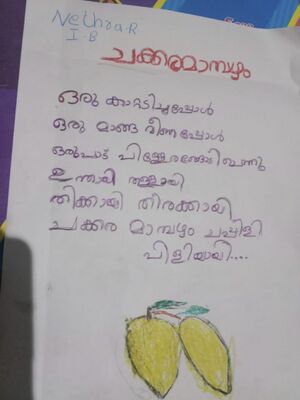 Nethra.R
I-B
ചക്കരമാമ്പഴം
ഒരു കാറ്റടിച്ചപ്പോൾ
ഒരു മാങ്ങ വീണപ്പോൾ
ഒരുപാട് പിള്ളേരങ്ങോടിവന്നു
ഉന്തായി തള്ളായി
തിക്കായി തിരക്കായി
ചക്കര മാമ്പഴം ചപ്പിളി
പിളിയായി....